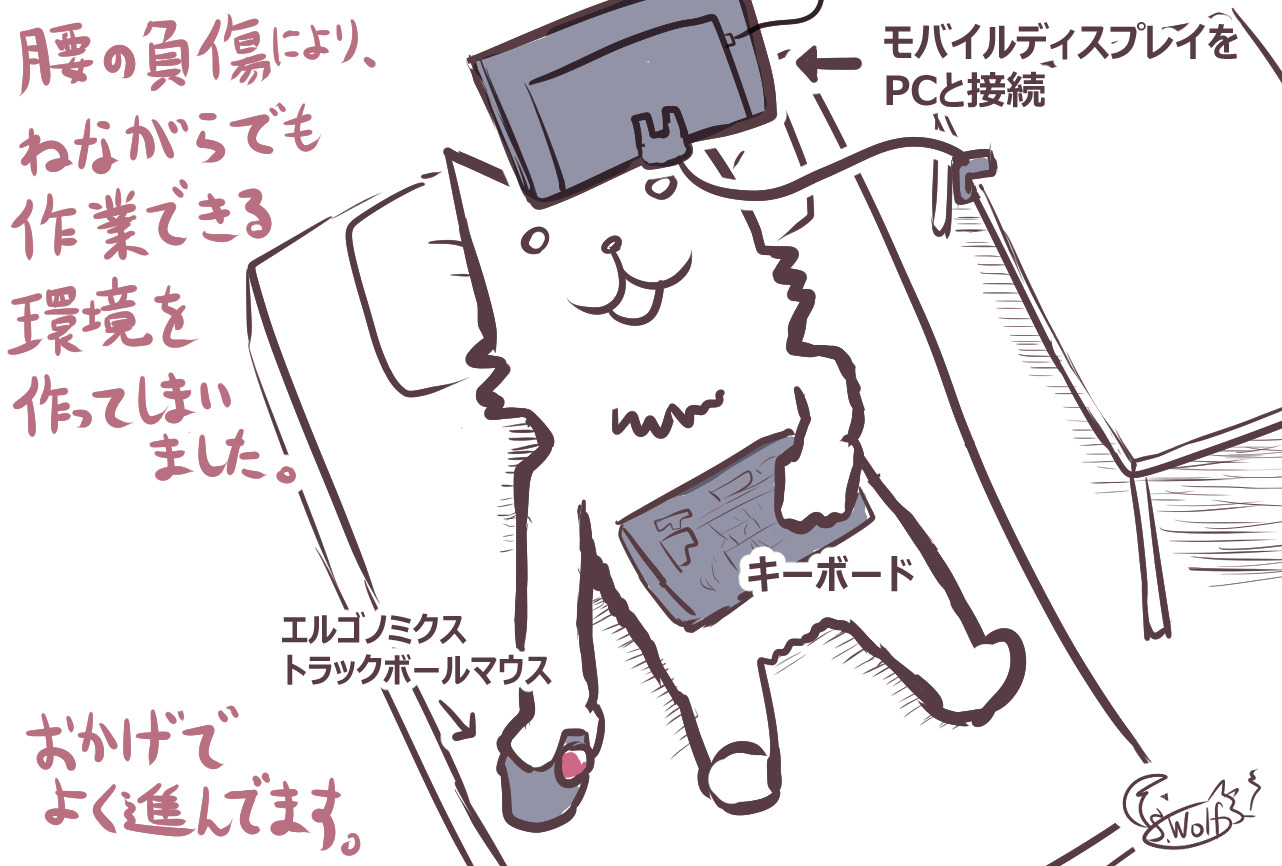 腰の負傷により、
ねながらでも
作業できる
環境を
作ってしまい
ました。
モバイルディスプレイを
PCと接続
キーボード
エルゴノミクス
トラックボールマウス
おかげで
よく進んでます。
S.Wolf